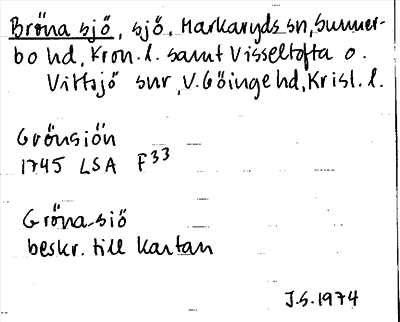 Bröna sjö, sjö, Markaryds sn, Sunner-
bo hd, Kron. l. samt Visseltofta o.
Vittsjö snr, V. Göinge hd, Krist. l.
Grönsiön
1745 LSA F33
Gröna-siö
beskr. till kartan
J.S. 1974